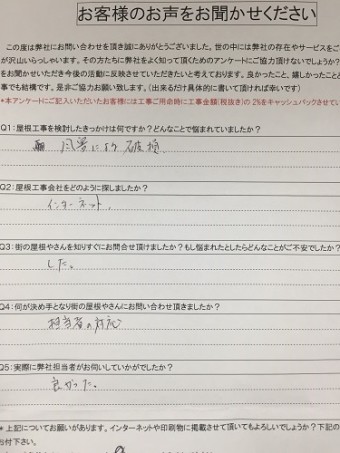 お客様のお声をお聞かせください
この度は弊社にお問い合わせを頂き誠にありがとうございました。世の中には弊社の存在やサービスをご
が沢山いらっしゃいます。その方たちに弊社をよく知って頂くためのアンケートにご協力頂けないでしょうか?
をお聞かせいただき今後の活動に反映させていただきたいと考えております。良かったこと、嬉しかったこと
事でも結構です。是非ご協力お願い致します。(出来るだけ具体的に書いて頂ければ幸いです)
*本アンケートにご記入いただいたお客様には工事ご用命時に工事金額(税抜き)の2%をキャッシュバックさせてい
Q1:屋根工事を検討したきっかけは何ですか?どんなことで悩まれていましたか?
風害による破損
Q2:屋根工事会社をどのように探しましたか?
インターネット.
Q3:街の屋根やさんを知りすぐにお問合せ頂けましたか?もし悩まれたとしたらどんなことがご不安でしたか?
した。
Q4:何が決め手となり街の屋根やさんにお問い合わせ頂きましたか?
担当者の対応
Q5:実際に弊社担当者がお伺いしていかがでしたか?
良かった。
*上記についてお願いがあります。インターネットや印刷物に掲載させて頂いてもよろしいでしょうか?下記の
お付下さい。